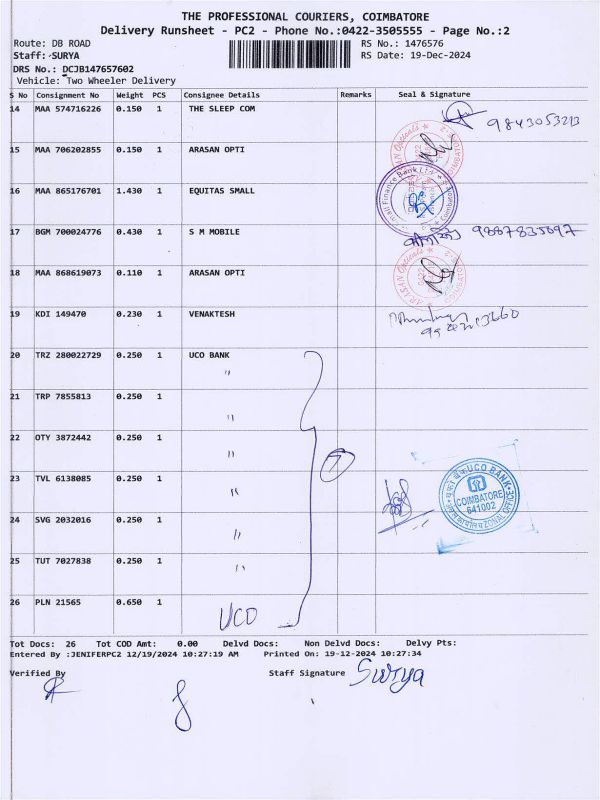 THE PROFESSIONAL COURIERS, COIMBATORE
Delivery Runsheet - PC2 - Phone No.:0422-3505555 - Page No.:2
Route: DB ROAD RS No.: 1476576
Staff: SURYA RS Date: 19-Dec-2024
DRS No.: DCJB147657602
Vehicle: Two Wheeler Delivery
S No Consignment No Weight PCS Consignee Details Remarks Seal & Signature
14 MAA 574716226 0.150 1 THE SLEEP COM
15 MAA 706202855 0.150 1 ARASAN OPTI
16 MAA 865176701 1.430 1 EQUITAS SMALL
17 BGM 700024776 0.430 1 S M MOBILE 9887835897
18 MAA 868619073 0.110 1 ARASAN OPTI
19 KDI 149470 0.230 1 VENAKTESH
20 TRZ 280022729 0.250 1 UCO BANK
"
21 TRP 7855813 0.250 1
"
22 OTY 3872442 0.250 1
"
7
23 TVL 6138085 0.250 1
"
UCO BANK
COIMBATORE
641002
ZONAL OFFICE
24 SVG 2032016 0.250 1
"
25 TUT 7027838 0.250 1
"
26 PLN 21565 0.650 1
UCO
Tot Docs: 26 Tot COD Amt: 0.00 Delvd Docs: Non Delvd Docs: Delvy Pts:
Entered By :JENIFERPC2 12/19/2024 10:27:19 AM Printed On: 19-12-2024 10:27:34
Verified By Staff Signature Surya